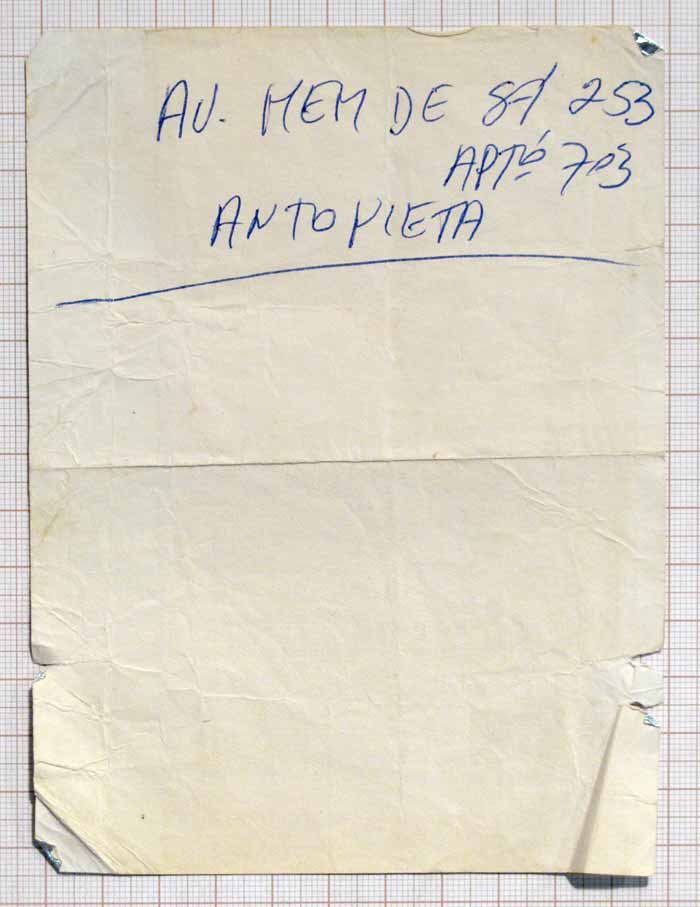 AV. MEM DE SÁ 253
APTº 703
ANTONIETA